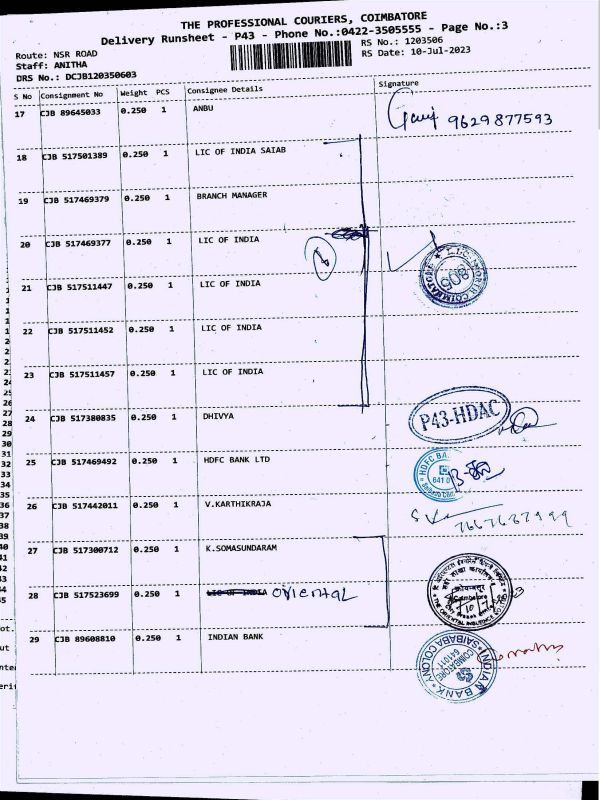 THE PROFESSIONAL COURIERS, COIMBATORE
Delivery Runsheet - P43 - Phone No.:0422-3505555 - Page No.:3
Route: NSR ROAD
RS No.: 1203506
Staff: ANITHA
RS Date: 10-Jul-2023
DRS No.: DCJB120350603
S No Consignment No Weight PCS Consignee Details Signature
17 CJB 89645033 0.250 1 ANBU
9629877593
18 CJB 517501389 0.250 1 LIC OF INDIA SAIAB
19 CJB 517469379 0.250 1 BRANCH MANAGER
20 CJB 517469377 0.250 1 LIC OF INDIA
21 CJB 517511447 0.250 1 LIC OF INDIA
22 CJB 517511452 0.250 1 LIC OF INDIA
23 CJB 517511457 0.250 1 LIC OF INDIA
24 CJB 517380835 0.250 1 DHIVYA
P43-HDAC
25 CJB 517469492 0.250 1 HDFC BANK LTD
HDFC BA
26 CJB 517442011 0.250 1 V.KARTHIKRAJA
27 CJB 517300712 0.250 1 K.SOMASUNDARAM
28 CJB 517523699 0.250 1 LIC OF INDIA Oriental
29 CJB 89608810 0.250 1 INDIAN BANK
INDIAN BANK
SAIBABA COLONY
COIMBATORE